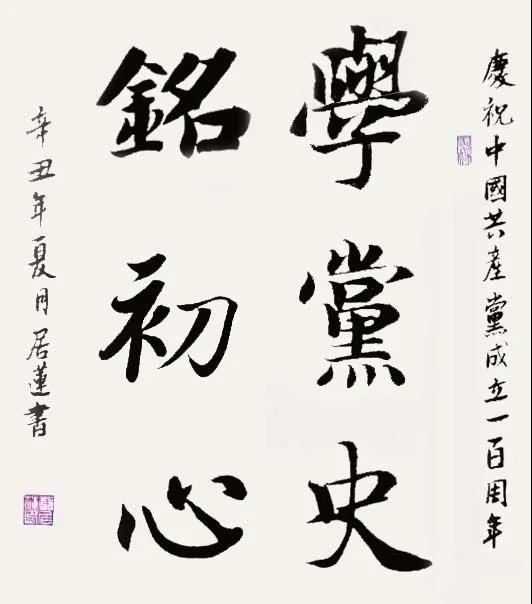 慶祝中國共產黨成立一百周年
學黨史
銘初心
辛丑年夏月居蓮書